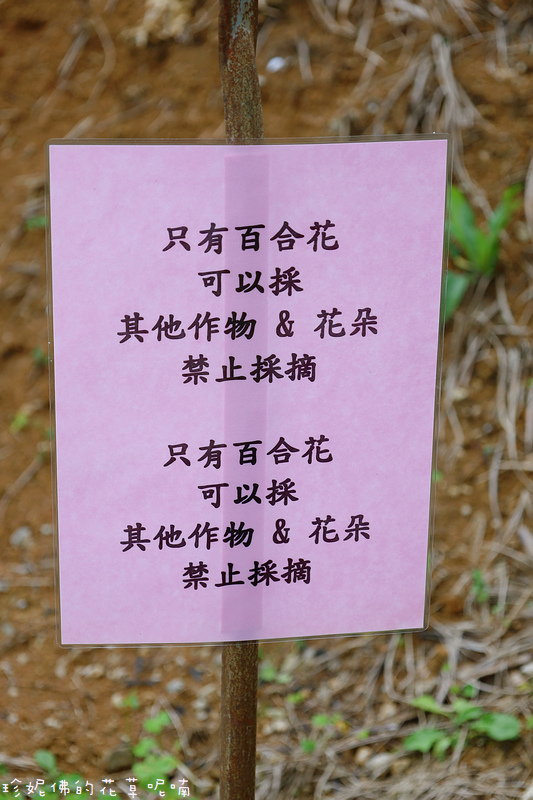 只有百合花
可以採
其他作物 & 花朵
禁止採摘
只有百合花
可以採
其他作物 & 花朵
禁止採摘
珍妮佛的花草呢喃